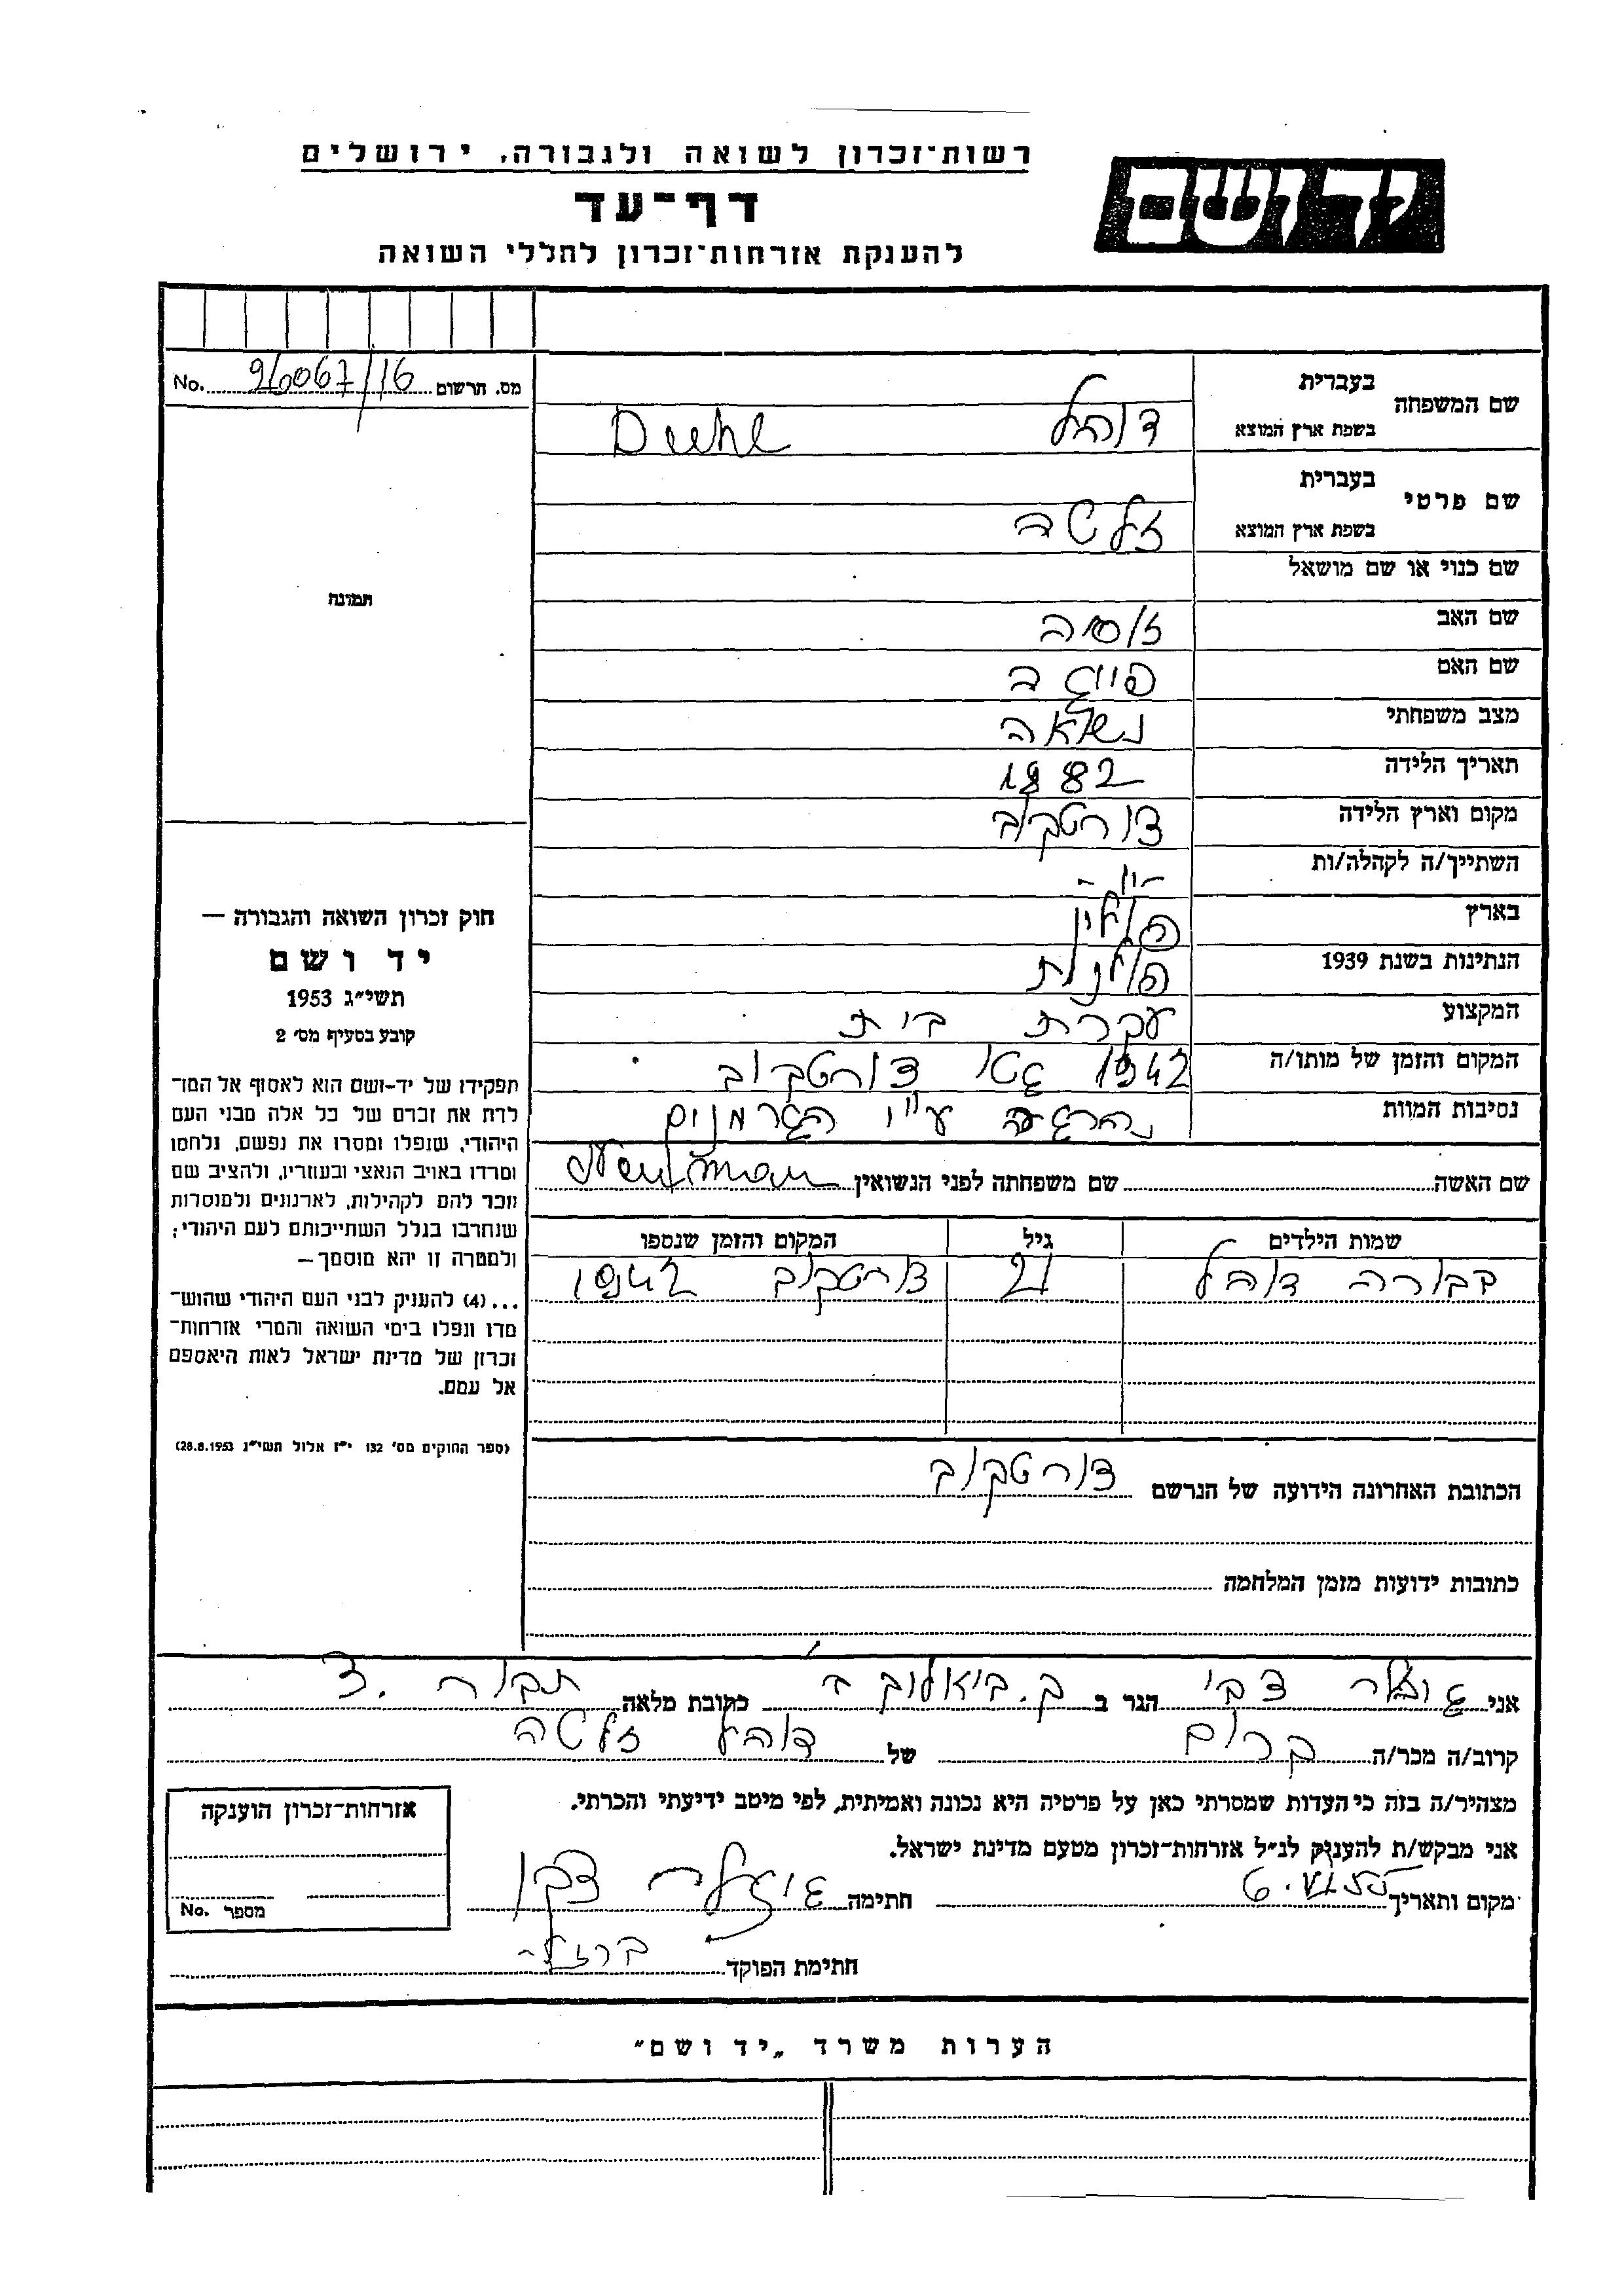 רשות־זכרון לשואה ולגבורה, ירושלים
יד ושם
דף־עד
להענקת אזרחות־זכרון לחללי השואה
מס. הרשום 26067/16 No.
שם המשפחה בעברית
בשפת ארץ המוצא דוהל Duhl
שם פרטי בעברית
בשפת ארץ המוצא זלטה
שם כנוי או שם מושאל
שם האב
שם האם פייגה
מצב משפחתי נשואה
תאריך הלידה 1882
מקום וארץ הלידה צ'ורטקוב
השתייך/ה לקהלה/ות -"-
בארץ פולין
הנתינות בשנת 1939 פולנית
המקצוע עקרת בית
המקום והזמן של מותו/ה 1942 גטו צ'ורטקוב
נסיבות המוות נהרגה ע"י הגרמנים
שם האשה שם משפחתה לפני הנשואין Neuman
שמות הילדים גיל המקום והזמן שנספו
דבורה דוהל 21 צ'ורטקוב 1942
הכתובת האחרונה הידועה של הנרשם צ'ורטקוב
כתובות ידועות מזמן המלחמה
תמונה
חוק זכרון השואה והגבורה —
יד ושם
תשי״ג 1953
קובע בסעיף מס׳ 2
תפקידו של יד-ושם הוא לאסוף אל המו־
לדת את זכרם של כל אלה מבני העם
היהודי, שנפלו ומסרו את נפשם, נלחמו
ומרדו באויב הנאצי ובעוזריו, ולהציב שם
וזכר להם לקהילות, לארגונים ולמוסדות
שנחרבו בגלל השתייכותם לעם היהודי;
ולמטרה זו יהא מוסמך—
...(4) להעניק לבני העם היהודי שהוש־
מדו ונפלו בימי השואה והמרי אזרחות־
זכרון של מדינת ישראל לאות היאספם
אל עמם.
(ספר החוקים מס׳ 132 י״ז אלול תשי״ג 28.8.1953)
אני צבי הגר ב ק. ביאליק כתובת מלאה תבור
קרוב/ה מכר/ה קרוב של דוהל זלטה
מצהיר/ה בזה כי העדות שמסרתי כאן על פרטיה היא נכונה ואמיתית, לפי מיטב ידיעתי והכרתי.
אני מבקש/ת להעניק לנ״ל אזרחות־זכרון מטעם מדינת ישראל.
מקום ותאריך חתימה צבי
חתימת הפוקד
אזרחות־זכרון הוענקה
מספר No.
הערות משרד „יד ושם״